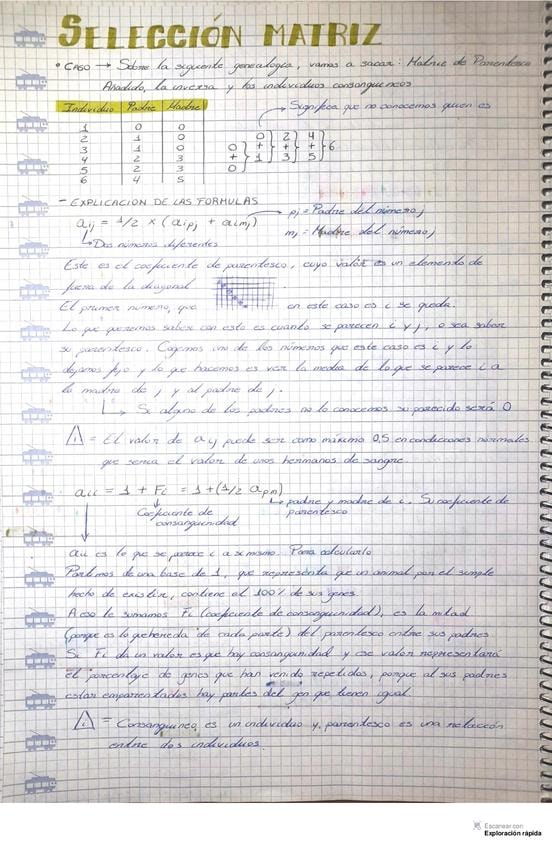 SELECCIÓN MATRIZ
• CASO → Sobre la siguiente genealogía, vamos a sacar: Matriz de Parentesco
Añadido, la inversa y los individuos consanguíneos
Individuo Padre Madre
→ Significa que no conocemos quien es
1 0 0
2 1 0
3 1 0
4 2 3
5 2 3
6 4 5
0 + 0
0 + 1
2 + 3
4 + 5
6
- EXPLICACIÓN DE LAS FORMULAS
aij = 1/2 x (aipj + aimj)
pj = Padre del número j
mj = Madre del número j
↳ Dos números diferentes
Este es el coeficiente de parentesco, cuyo valor es un elemento de
fuera de la diagonal
El primer número, que en este caso es i se queda.
Lo que queremos saber con esto es cuánto se parecen i y j, o sea saber
su parentesco. Cogemos uno de los números que este caso es i y lo
dejamos fijo y lo que hacemos es ver la media de lo que se parece i a
la madre de j y al padre de j.
↳ Si alguno de los padres no lo conocemos su parecido será 0
⚠ = El valor de aij puede ser como máximo 0,5 en condiciones normales
que seria el valor de unos hermanos de sangre.
aii = 1 + Fi = 1 + (1/2 apm)
↳ padre y madre de i. Su coeficiente de
parentesco
Coeficiente de
consanguinidad
aii es lo que se parece i a si mismo. Para calcularlo
Partimos de una base de 1, que representa que un animal por el simple
hecho de existir, contiene el 100% de sus genes
A eso le sumamos Fi (coeficiente de consanguinidad), es la mitad
(porque es lo que hereda de cada parte) del parentesco entre sus padres
Si Fi da un valor es que hay consanguinidad y ese valor representará
el porcentaje de genes que han venido repetidos, porque al sus padres
estar emparentados hay partes del gen que tienen igual.
⚠ = Consanguíneo es un individuo y parentesco es una relación
entre dos individuos.
Escanear con
Exploración rápida